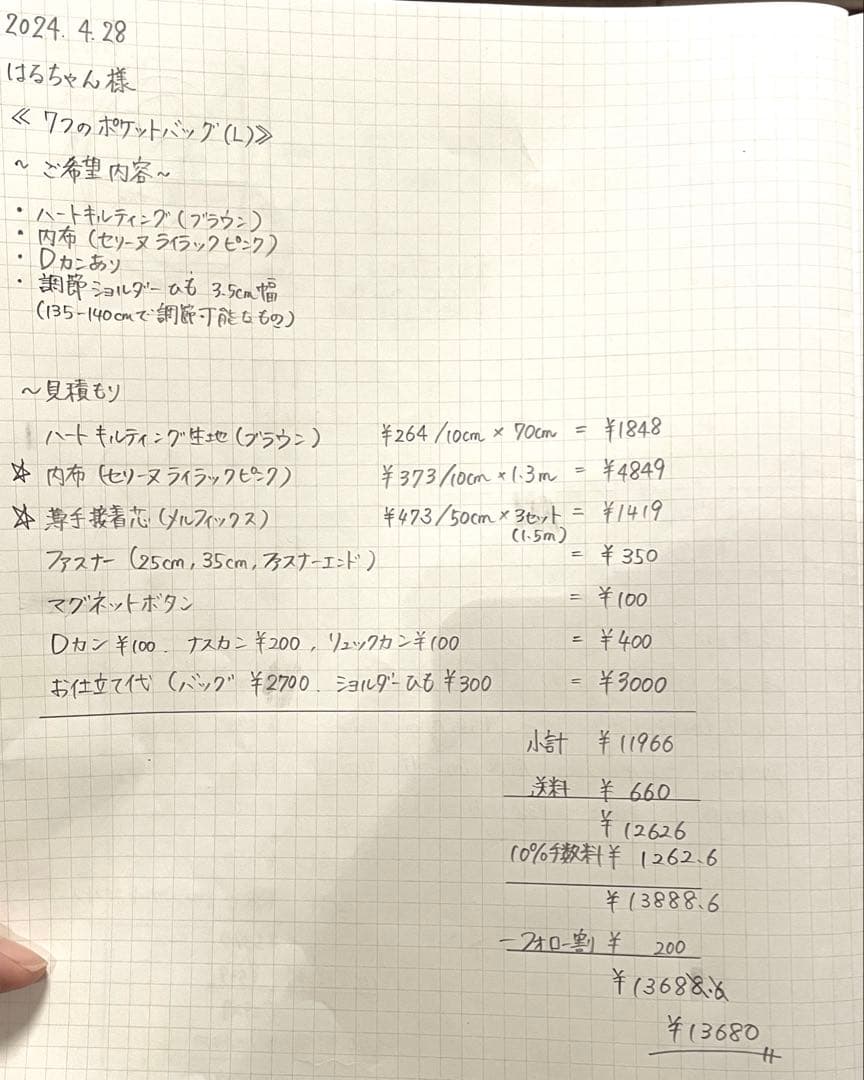 2024. 4.28
はるちゃん様
≪ 7つのポケットバッグ(L)≫
～ ご希望内容～
・ハートキルティング(ブラウン)
・内布(セリーヌライラックピンク)
・Dカンあり
・調節ショルダーひも 3.5cm幅
(135-140cmで調節可能なもの)
～見積もり
ハートキルティング生地(ブラウン) ¥264/10cm × 70cm = ¥1848
☆ 内布(セリーヌライラックピンク) ¥373/10cm × 1.3m = ¥4849
☆ 薄手接着芯(メルフィックス) ¥473/50cm × 3セット = ¥1419
(1.5m)
ファスナー(25cm, 35cm, ファスナーエンド) = ¥350
マグネットボタン = ¥100
Dカン¥100. ナスカン¥200, リュックカン¥100 = ¥400
お仕立て代(バッグ ¥2700. ショルダーひも ¥300 = ¥3000
小計 ¥11966
送料 ¥ 660
¥12626
10%手数料¥ 1262.6
¥13888.6
-フォロー割 ¥ 200
¥13688.6
¥13680